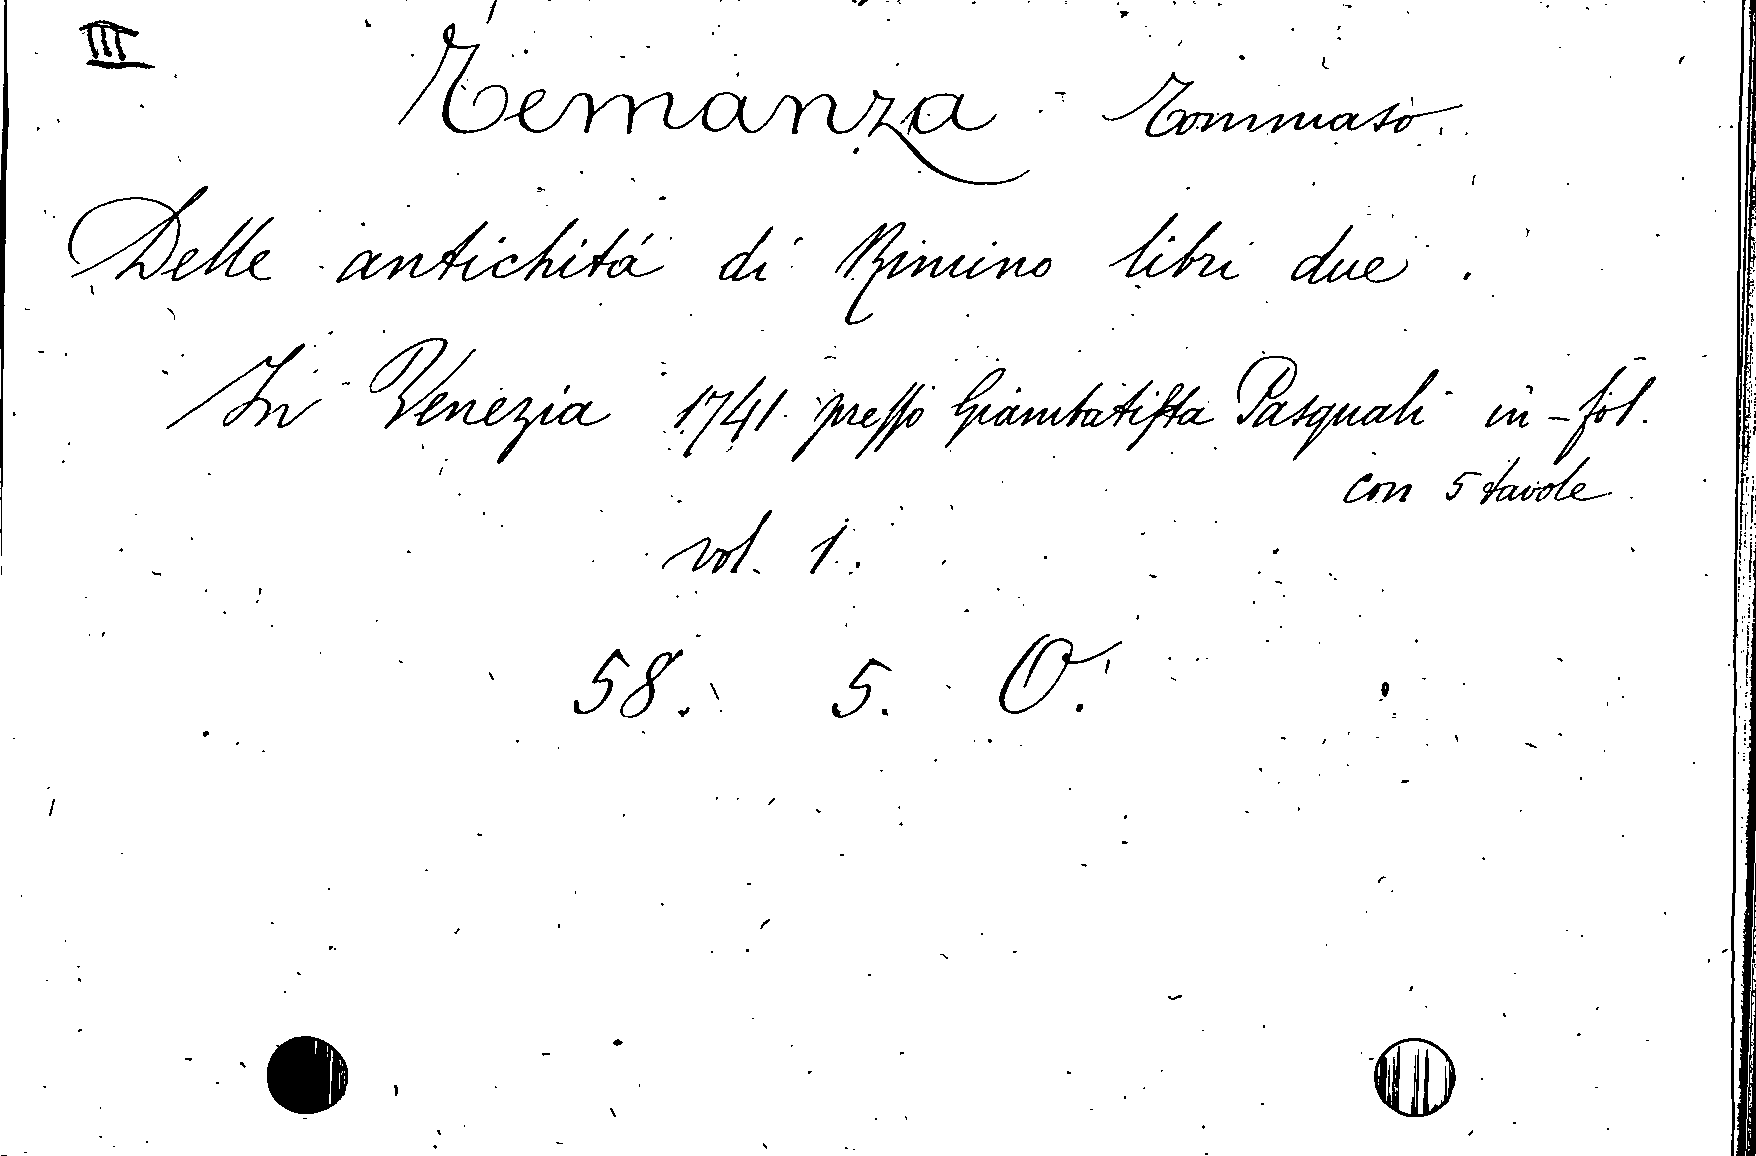 III
Temanza Tommaso.
Delle antichitá di Rimino libri due.
In Venezia 1741. presso Giambatista Pasquali in-fol.
con 5 tavole
vol. 1.
58. 5. O.